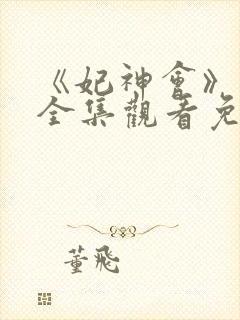 《妃神會》
全集觀看免
董飛